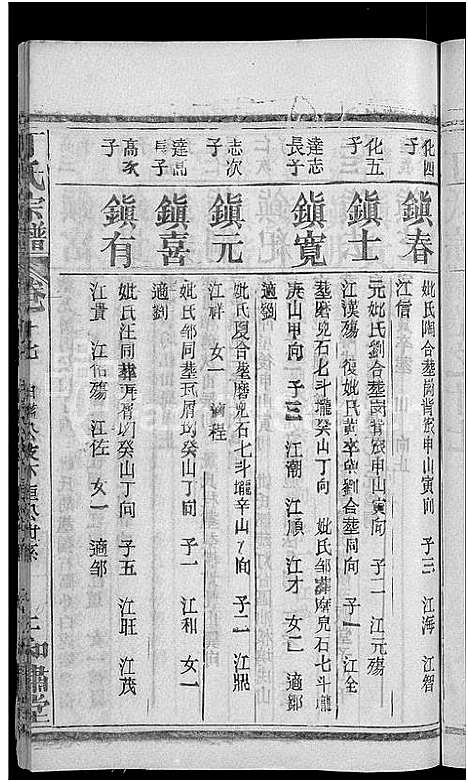 化四
子
鎭春
妣氏陶合塟崗背坂申山寅向 子三 江海 江智
江信
化五
子
鎭士
元妣氏劉合塟崗背坂申山寅向 子二 江元殤
江漢殤 復妣氏黃卒與劉合塟同向 子一 江全
達志
長子
鎭寬
塟磨兒石七斗壠癸山丁向 妣氏邹葬磨兒石七斗壠
庚山甲向 子三 江潮 江順 江才 女一 適鄒
適劉
志次
子
鎭元
妣氏夏合塟磨兒石七斗壠辛山 向 子二 江鼎
江祥 女一 適程
達高
長子
鎭喜
妣氏邹同塟瓦屑均癸山丁向 子一 江和 女一
適劉
高次
子
鎭有
妣氏汪同塟瓦屑均癸山丁向 子五 江旺 江茂
江貴 江佑殤 江佐 女一 適邹
丁氏宗譜
卷十七